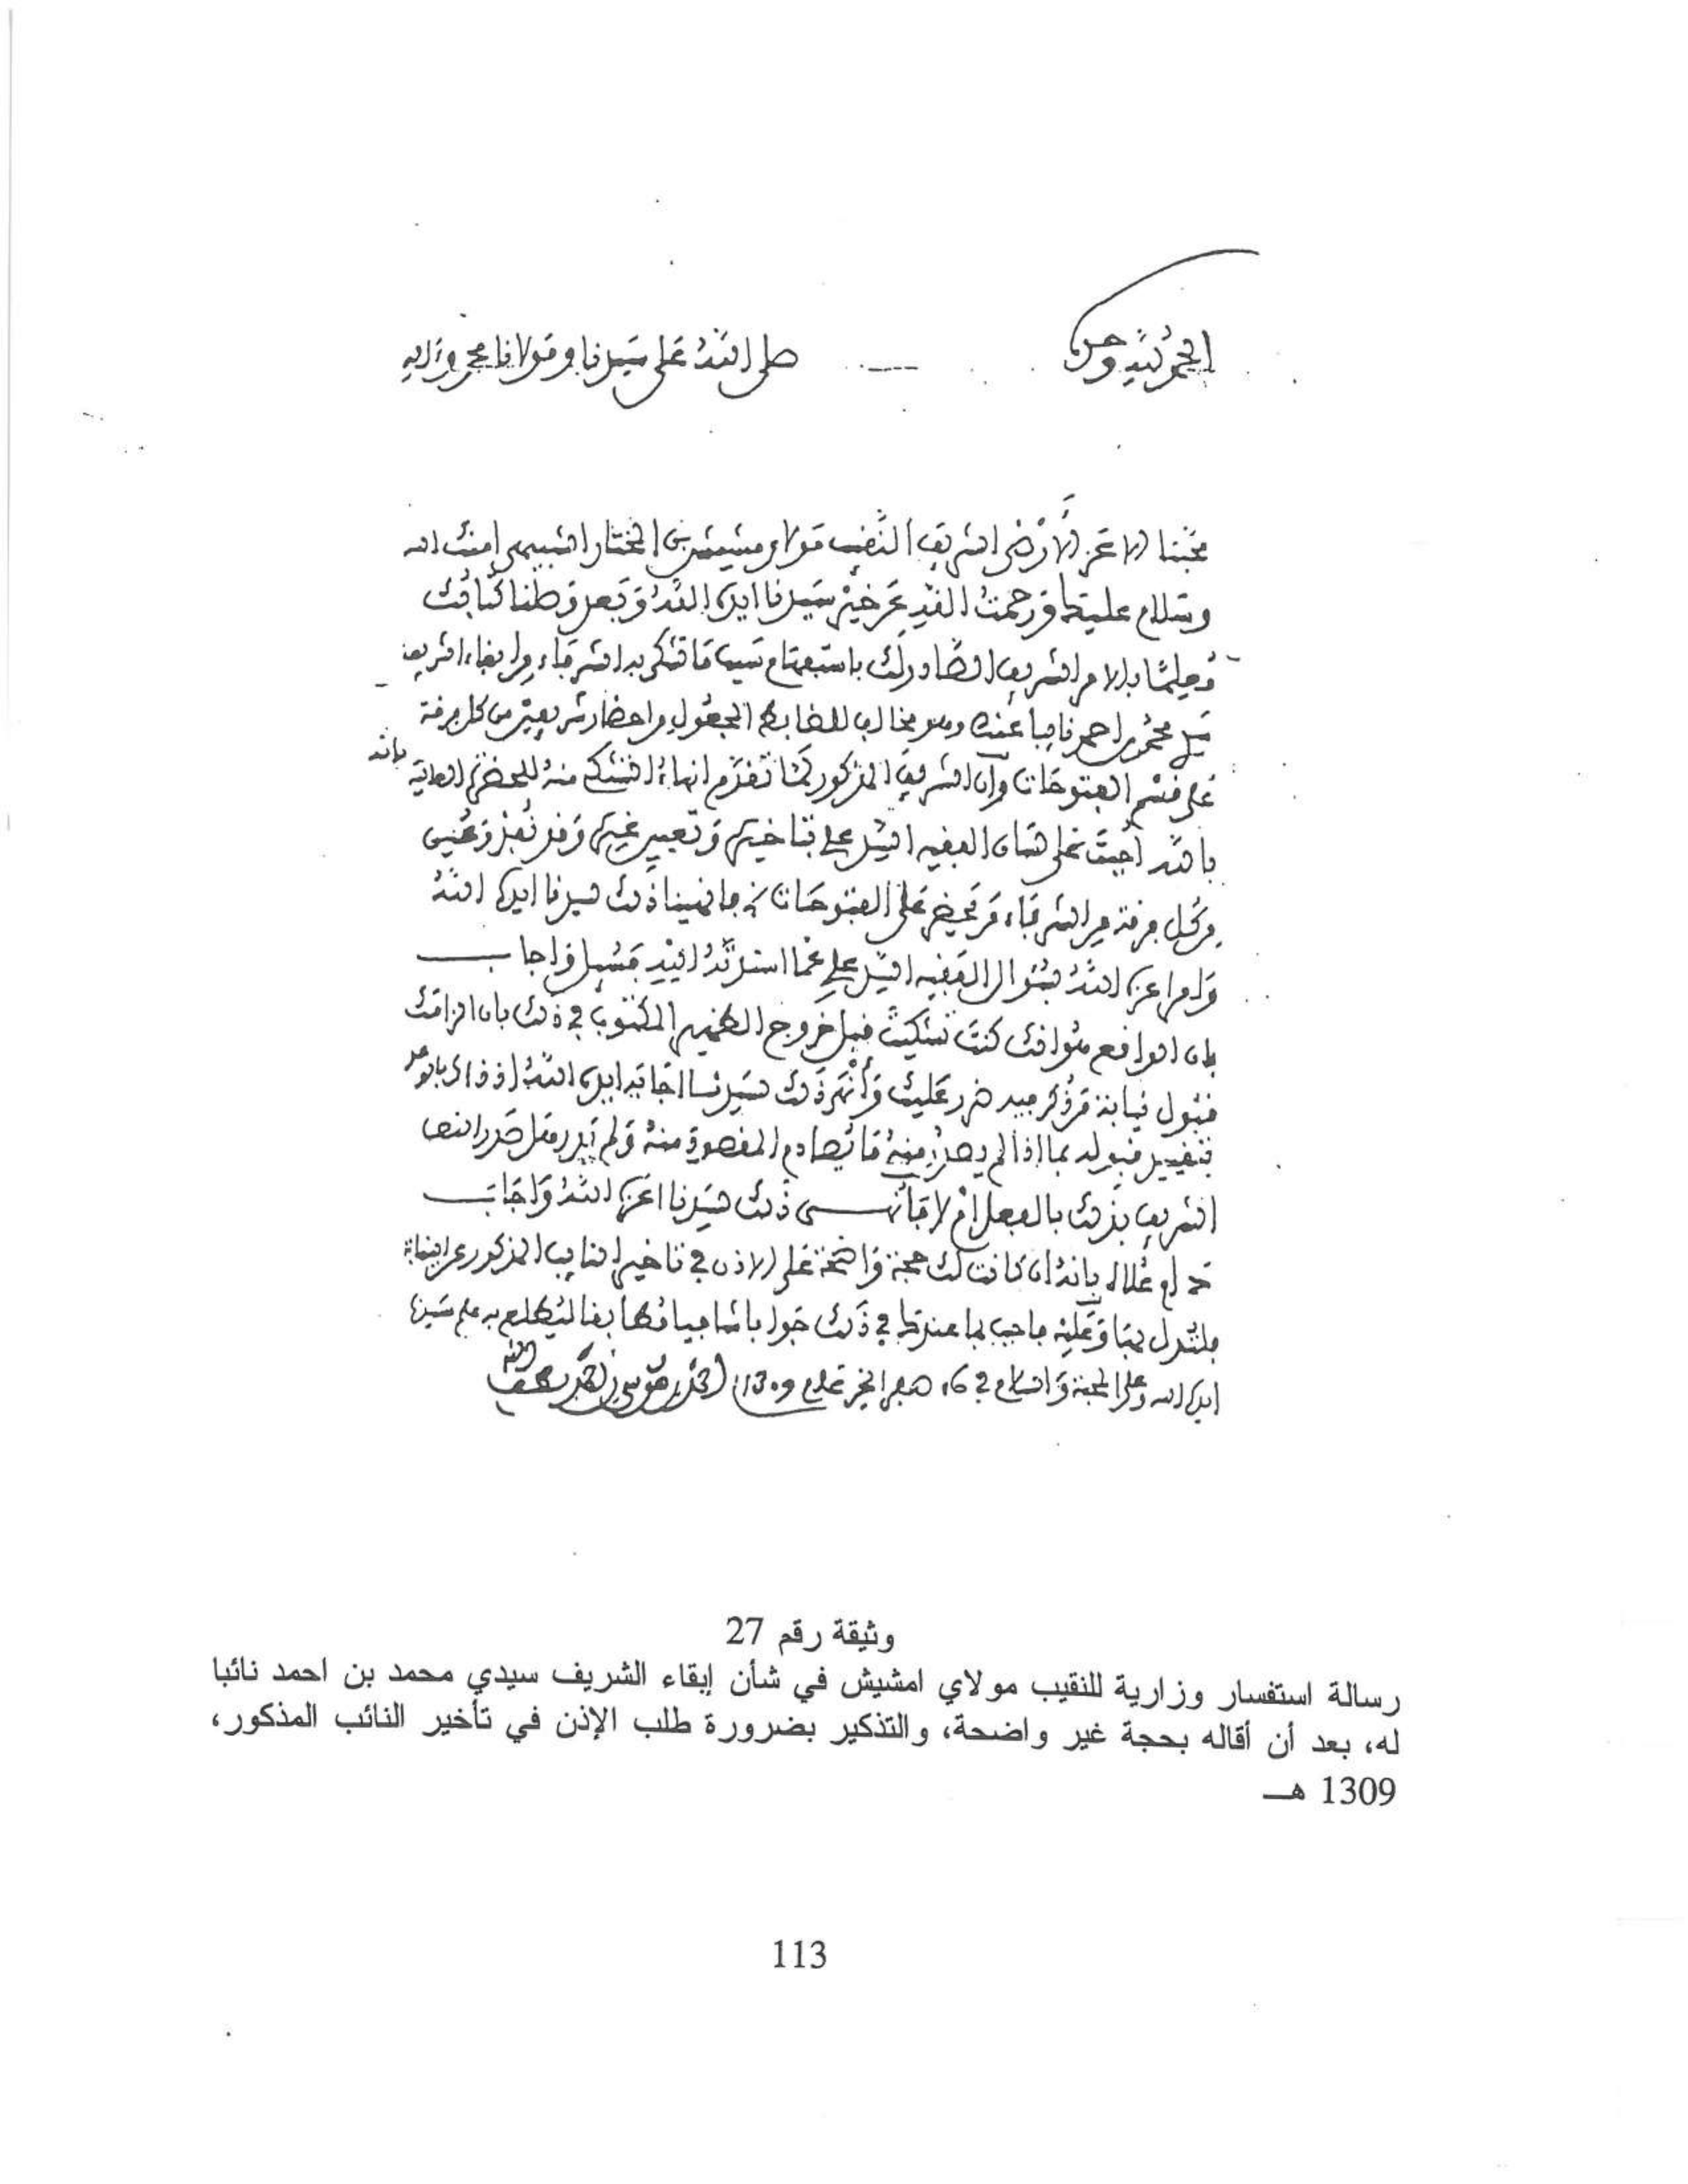 الحمد لله وحده
صلى الله على سيدنا ومولانا محمد وآله
محبنا الأعز الأرضى الشريف النقيب مولاي مشيش بن المختار الشبيهي أمنك الله
وسلام عليك ورحمت الله عن خير سيدنا أيده الله وبعد وصلنا كتابك
بالأمر الشريف الصادر لك باستفهام ما تشكى به الشرفاء من إبقاء الشريف
سيدي محمد بن احمد نايبا عنك وهو مخالف للضابط المجعول من احضار شريفين من كل فرقة
على قسم الفتوحات وأن الشريف المذكور كما تقدم انهاء التشكي منه للحضرة العالية بالله
بالله أجبت على لسان الفقيه السيد علي بتاخيره وتعيين غيره وقد نفذ وعين
من كل فرقة من الشرفاء من يحضر على الفتوحات فأنهينا ذلك لسيدنا أيده الله
وأمر أعزه الله بسؤال الفقيه السيد علي عما استند إليه فسئل وأجاب
بأن الواقع هو انك كنت تشكيت قبل خروج الظهير المكتوب في ذلك بأن الزامك
قبول نيابة من ذكر فيه ضرر عليك وأنهى ذلك لسيدنا أجابه أيده الله إذ ذاك
بتقييد قبوله بما إذا لم يصدر منه ما يصادم المقصود منه ولم ندر هل صدر النص
الشريف بذلك بالفعل أم لا فأنهى ذلك لسيدنا أعزه الله وأجاب
دام علاه بانه ان كانت لك حجة واضحة على الاذن في تاخير النايب المذكور عن النيابة
فلتدل بها وعليه فأجب بما عندك في ذلك جوابا شافيا مطابقا ليطلع به علم سيدنا
أيده الله وعلى المحبة والسلام في 16 صفر الخير عام 1309 احمد بن موسى بن احمد لطف الله به
وثيقة رقم 27
رسالة استفسار وزارية للنقيب مولاي امشيش في شأن إبقاء الشريف سيدي محمد بن احمد نائبا
له، بعد أن أقاله بحجة غير واضحة، والتذكير بضرورة طلب الإذن في تأخير النائب المذكور،
1309 هـ
113